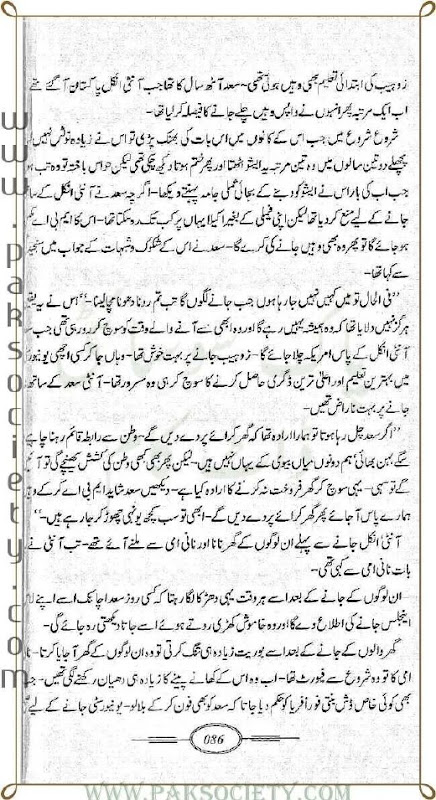 زوہیب کی ابتدائی تعلیم بھی وہیں ہوئی تھی۔ سعد آٹھ سال کا تھا جب آنٹی انکل پاکستان آ گئے تھے
اب ایک مرتبہ پھر انہوں نے واپس وہیں چلے جانے کا فیصلہ کر لیا تھا۔
شروع شروع میں جب اس کے کانوں میں اس بات کی بھنک پڑی تو اس نے زیادہ نوٹس نہیں
پچھلے دو تین سالوں میں وہ تین مرتبہ یہ ایشو اٹھتا اور پھر ختم ہوتا دیکھ چکی تھی لیکن حواس باختہ تو وہ تب ہو
جب اب کی بار اس نے ایشو کو دبنے کے بجائے عملی جامہ پہنتے دیکھا۔ اگرچہ سعد نے آنٹی انکل کے سا
جانے کے لیے منع کر دیا تھا لیکن اپنی فیملی کے بغیر اکیلا یہاں پر کب تک رہ سکتا تھا۔ اس کا ایم بی اے
ہو جائے گا تو پھر وہ بھی وہیں جانے کی کرے گا۔ سعد نے اس کے شکوک و شبہات کے جواب میں سنجید
سے کہا تھا۔
”فی الحال تو میں کہیں نہیں جا رہا ہوں جب جانے لگوں گا تب تم رونا دھونا مچا لینا۔“ اس نے یہ یقین
ہرگز نہیں دلایا تھا کہ وہ ہمیشہ یہیں رہے گا اور وہ ابھی سے آنے والے وقت کو سوچ کر رو رہی تھی جب س
آنٹی انکل کے پاس امریکہ چلا جائے گا۔ زوہیب جانے پر بہت خوش تھا۔ وہاں جا کر کسی اچھی یونیور
میں بہترین تعلیم اور اعلیٰ ترین ڈگری حاصل کرنے کا سوچ کر ہی وہ مسرور تھا۔ آنٹی سعد کے ساتھ
جانے پر بہت ناراض تھیں۔
”اگر سعد چل رہا ہوتا تو ہمارا ارادہ تھا کہ گھر کرائے پر دے دیں گے۔ وطن سے رابطہ قائم رہنا چاہیے
سگے بہن بھائی ہم دونوں میاں بیوی کے یہاں نہیں ہیں۔ لیکن پھر بھی کبھی وطن کی کشش کھینچے گی تو آ
گے تو سہی۔ یہی سوچ کر گھر فروخت نہ کرنے کا ارادہ کیا ہے۔ دیکھیں سعد شاید ایم بی اے کر کے و
ہمارے پاس آ جائے پھر گھر کرائے پر دے دیں گے۔ ابھی تو سب کچھ یونہی چھوڑ کر جا رہے ہیں۔“
آنٹی انکل جانے سے پہلے ان لوگوں کے گھر نانا اور نانی امی سے ملنے آئے تھے۔ تب آنٹی نے
بات نانی امی سے کہی تھی۔
ان لوگوں کے جانے کے بعد اسے ہر وقت یہی دھڑکا لگا رہتا کہ کسی روز سعد اچانک اسے اپنے لاس
اینجلس جانے کی اطلاع دے گا اور وہ خاموش کھڑی روتے ہوئے اسے جاتا دیکھتی رہ جائے گی۔
گھر والوں کے جانے کے بعد اسے بوریت زیادہ ہی تنگ کرتی تو وہ ان لوگوں کے گھر آ جایا کرتا۔ نا
امی کا تو وہ شروع سے فیورٹ تھا۔ اب وہ اس کے کھانے پینے کا زیادہ ہی دھیان رکھنے لگی تھیں۔ جب
بھی کوئی خاص ڈش بنتی فوراً افریا کو حکم دیا جاتا کہ سعد کو بھی فون کر کے بلا لو۔ یونیورسٹی جانے کے لیے
086
www.paksociety.com
WWW.PAKSOCIETY.COM